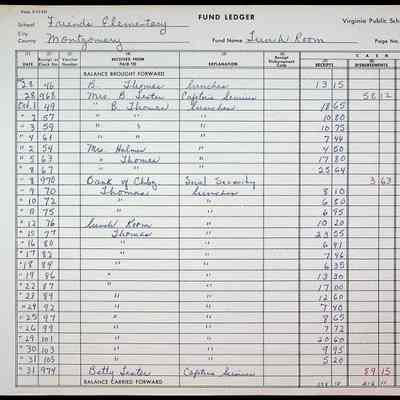 School Friends Elementary FUND LEDGER Virginia Public Sch
City
County Montgomery Fund Name Lunch Room Page No.
(1) (2) (3) (4) (5) (6)
CASH
DATE Receipt or Check No. RECEIVED FROM PAID TO EXPLANATION Receipt Disbursement Code RECEIPTS DISBURSEMENTS
BALANCE BROUGHT FORWARD
28 46 B. Thomas Lunches 13 15
28 968 Mrs. B. Lester 58 12
Oct. 1 49 " B. Thomas Lunches 18 65
" 2 57 " " " 10 80
" 3 59 " " " 10 75
" 4 61 " " " 7 44
" 2 54 Mrs. Holmes " 4 50
" 5 63 " Thomas " 17 80
" 8 67 " " 25 64
" 8 970 Bank of Chbg. Social Security 3 63
" 9 70 Thomas Lunches 8 10
" 10 72 " " 6 80
" 11 75 " " 6 95
" 12 76 Lunch Room " 10 20
" 15 77 Thomas " 23 55
" 16 80 " " 6 91
" 17 82 " " 7 46
" 18 84 " " 6 35
" 19 86 " " 13 30
" 22 87 " " 17 00
" 23 89 " " 12 60
" 24 92 " " 7 40
" 25 97 " " 8 65
" 26 99 " " 7 72
" 29 101 " " 20 60
" 30 103 " " 9 95
" 31 105 " " 5 20
" 31 974 Betty Lester 89 15
BALANCE CARRIED FORWARD